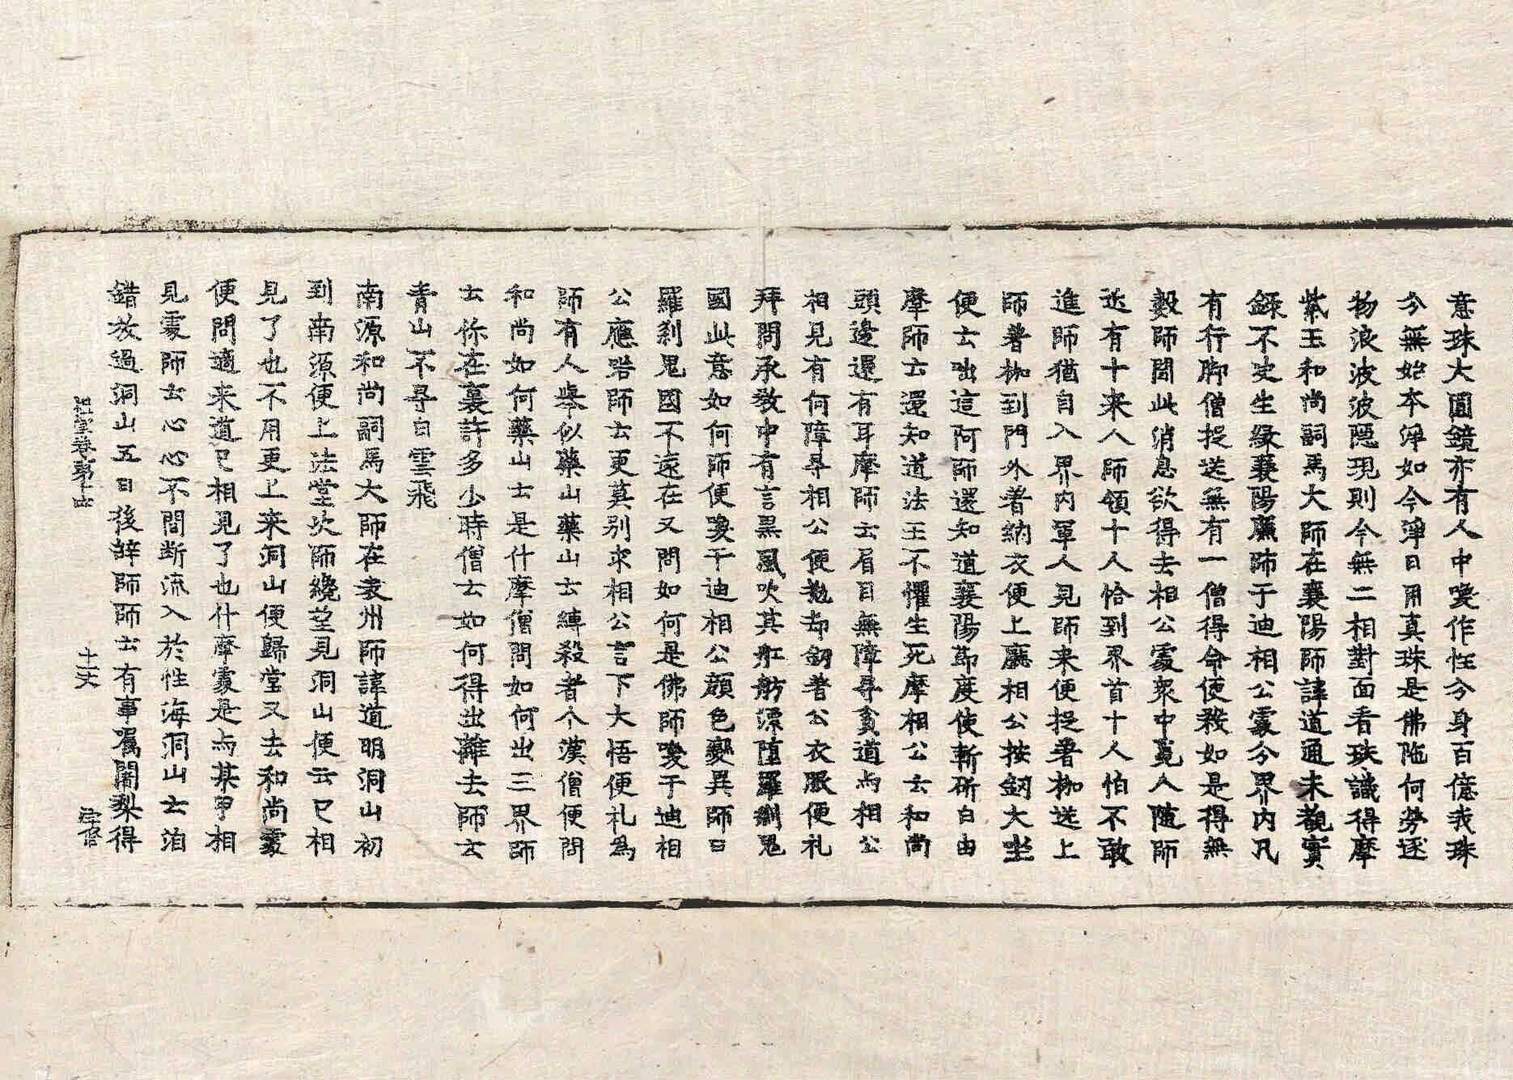 意珠大圓鏡亦有人中喚作性分身百億我珠
分無始本淨如今淨日用真珠是佛陁何勞逐
物浪波波隱現則今無二相對面看珠識得摩
紫玉和尚嗣馬大師在襄陽師諱道通未覩實
錄不定生緣襄陽廉帥于迪相公處分界內凡
有行脚僧捉送無有一僧得命便殺如是得無
數師聞此消息欲得去相公處衆中覓人隨師
近有十來人師領十人恰到界首十人怕不敢
進師猶自入界內軍人見師來便捉著枷送上
師著枷到門外著納衣便上廳相公按劒大坐
便云咄這阿師還知道襄陽節度使斬斫自由
摩師云還知道法王不懼生死摩相公云和尚
頭邊還有耳摩師云眉目無障㝵貧道与相公
相見有何障㝵相公便抛却劒著公衣服便礼
拜問承教中有言黑風吹其舡舫漂墮羅剎鬼
國此意如何師便喚于迪相公顔色變異師曰
羅剎鬼國不遠在又問如何是佛師喚于迪相
公應喏師云更莫別求相公言下大悟便礼爲
師有人舉似藥山藥山云縛殺者个漢僧便問
和尚如何藥山云是什摩僧問如何出三界師
云你在裏許多少時僧云如何得出離去師云
青山不㝵白雲飛
南源和尚嗣馬大師在袁州師諱道明洞山初
到南源便上法堂次師纔望見洞山便云已相
見了也不用更上來洞山便歸堂又去和尚處
便問適來道已相見了也什摩處是与某甲相
見處師云心心不間斷流入於性海洞山云洎
錯放過洞山五日後辞師師云有事囑闍梨得
祖堂卷第十四 十二丈